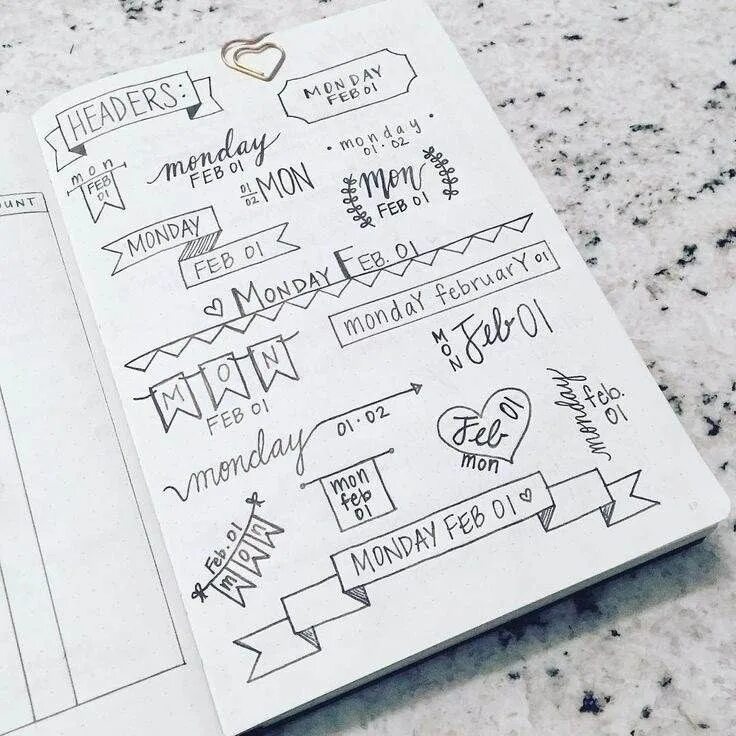 HEADERS:
MONDAY
FEB 01
mon
FEB
01
monday
FEB 01
monday
01.02
01
02
MON
mon
FEB 01
MONDAY
FEB 01
OUNT
MONDAY FEB. 01
mondaY februarY 01
MON
FEB 01
MON
Feb 01
monday
01.02
Feb 01
mon
monday
feb.
01
mon
feb
01
Feb. 01
mon
MONDAY FEB 01